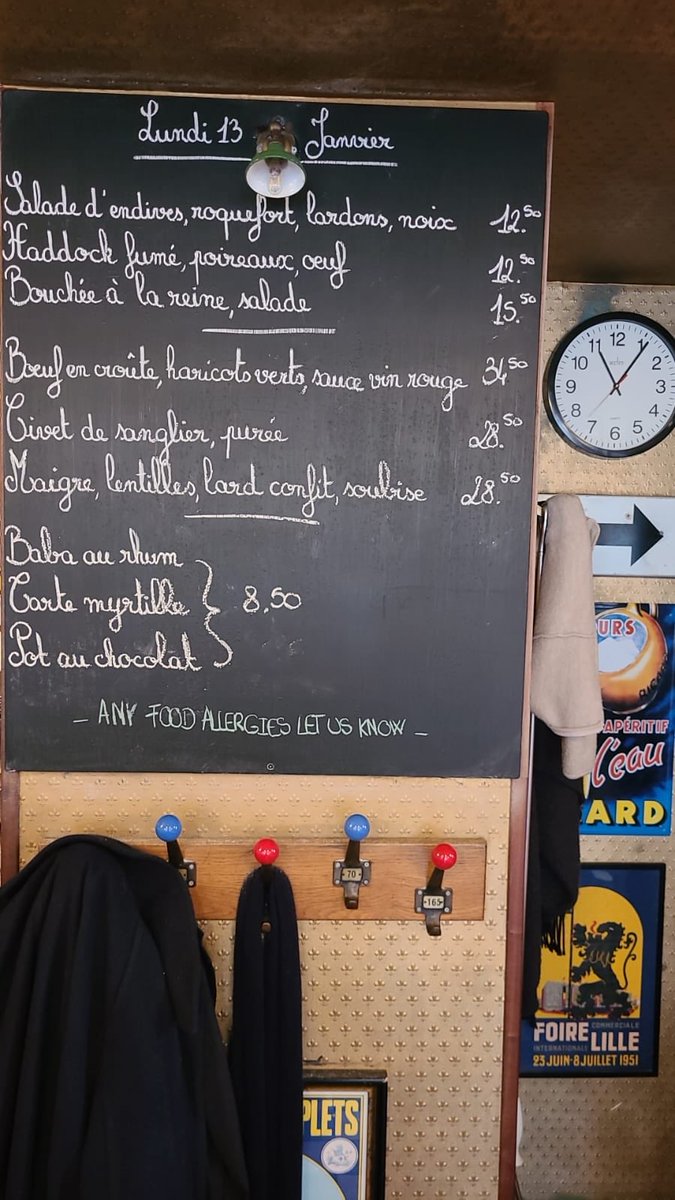 Lundi 13 Janvier
Salade d'endives, roquefort, lardons, noix 12.50
Haddock fumé, poireaux, oeuf 12.50
Bouchée à la reine, salade 15.50
Bœuf en croûte, haricots verts, sauce vin rouge 34.50
Civet de sanglier, purée 28.50
Maigre, lentilles, lard confit, soubise 28.50
Baba au rhum
Tarte myrtille 8,50
Pot au chocolat
- ANY FOOD ALLERGIES LET US KNOW -
11 12 1
10 2
9 3
8 4
7 6 5
URS
APÉRITIF
l'eau
ARD
70
165
FOIRE COMMERCIALE
INTERNATIONALE LILLE
23 JUIN-8 JUILLET 1951
PLETS